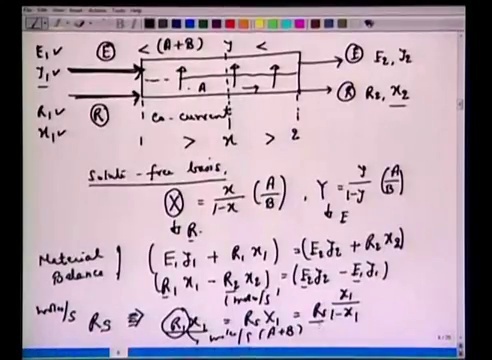 E₁ ✓ Ⓔ < (A+B) y < Ⓔ E₂, y₂
y₁ ✓
. A →
R₁ ✓ Ⓡ Ⓡ R₂, x₂
x₁ ✓ co-current
1 > x > 2
Solute-free basis.
X = x/(1-x) (A/B) , Y = y/(1-y) (A/B)
↓ R. ↓ E
Material Balance } (E₁y₁ + R₁x₁) = (E₂y₂ + R₂x₂)
(R₁x₁ - R₂x₂) = (E₂y₂ - E₁y₁)
(moles/s)
moles/s Rs ⇒ R₁x₁ = Rs X₁ = Rs x₁/(1-x₁)
moles/s (A+B)